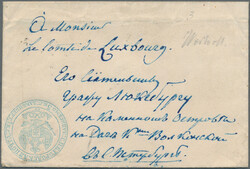 à Monsieur
Le Comte de Luxbourg.
Его Сіятельству
Графу Люксбургу
на Каменномъ Островѣ
на Дачѣ К<sup>ни</sup> Волконской
въ С. Петербургѣ.